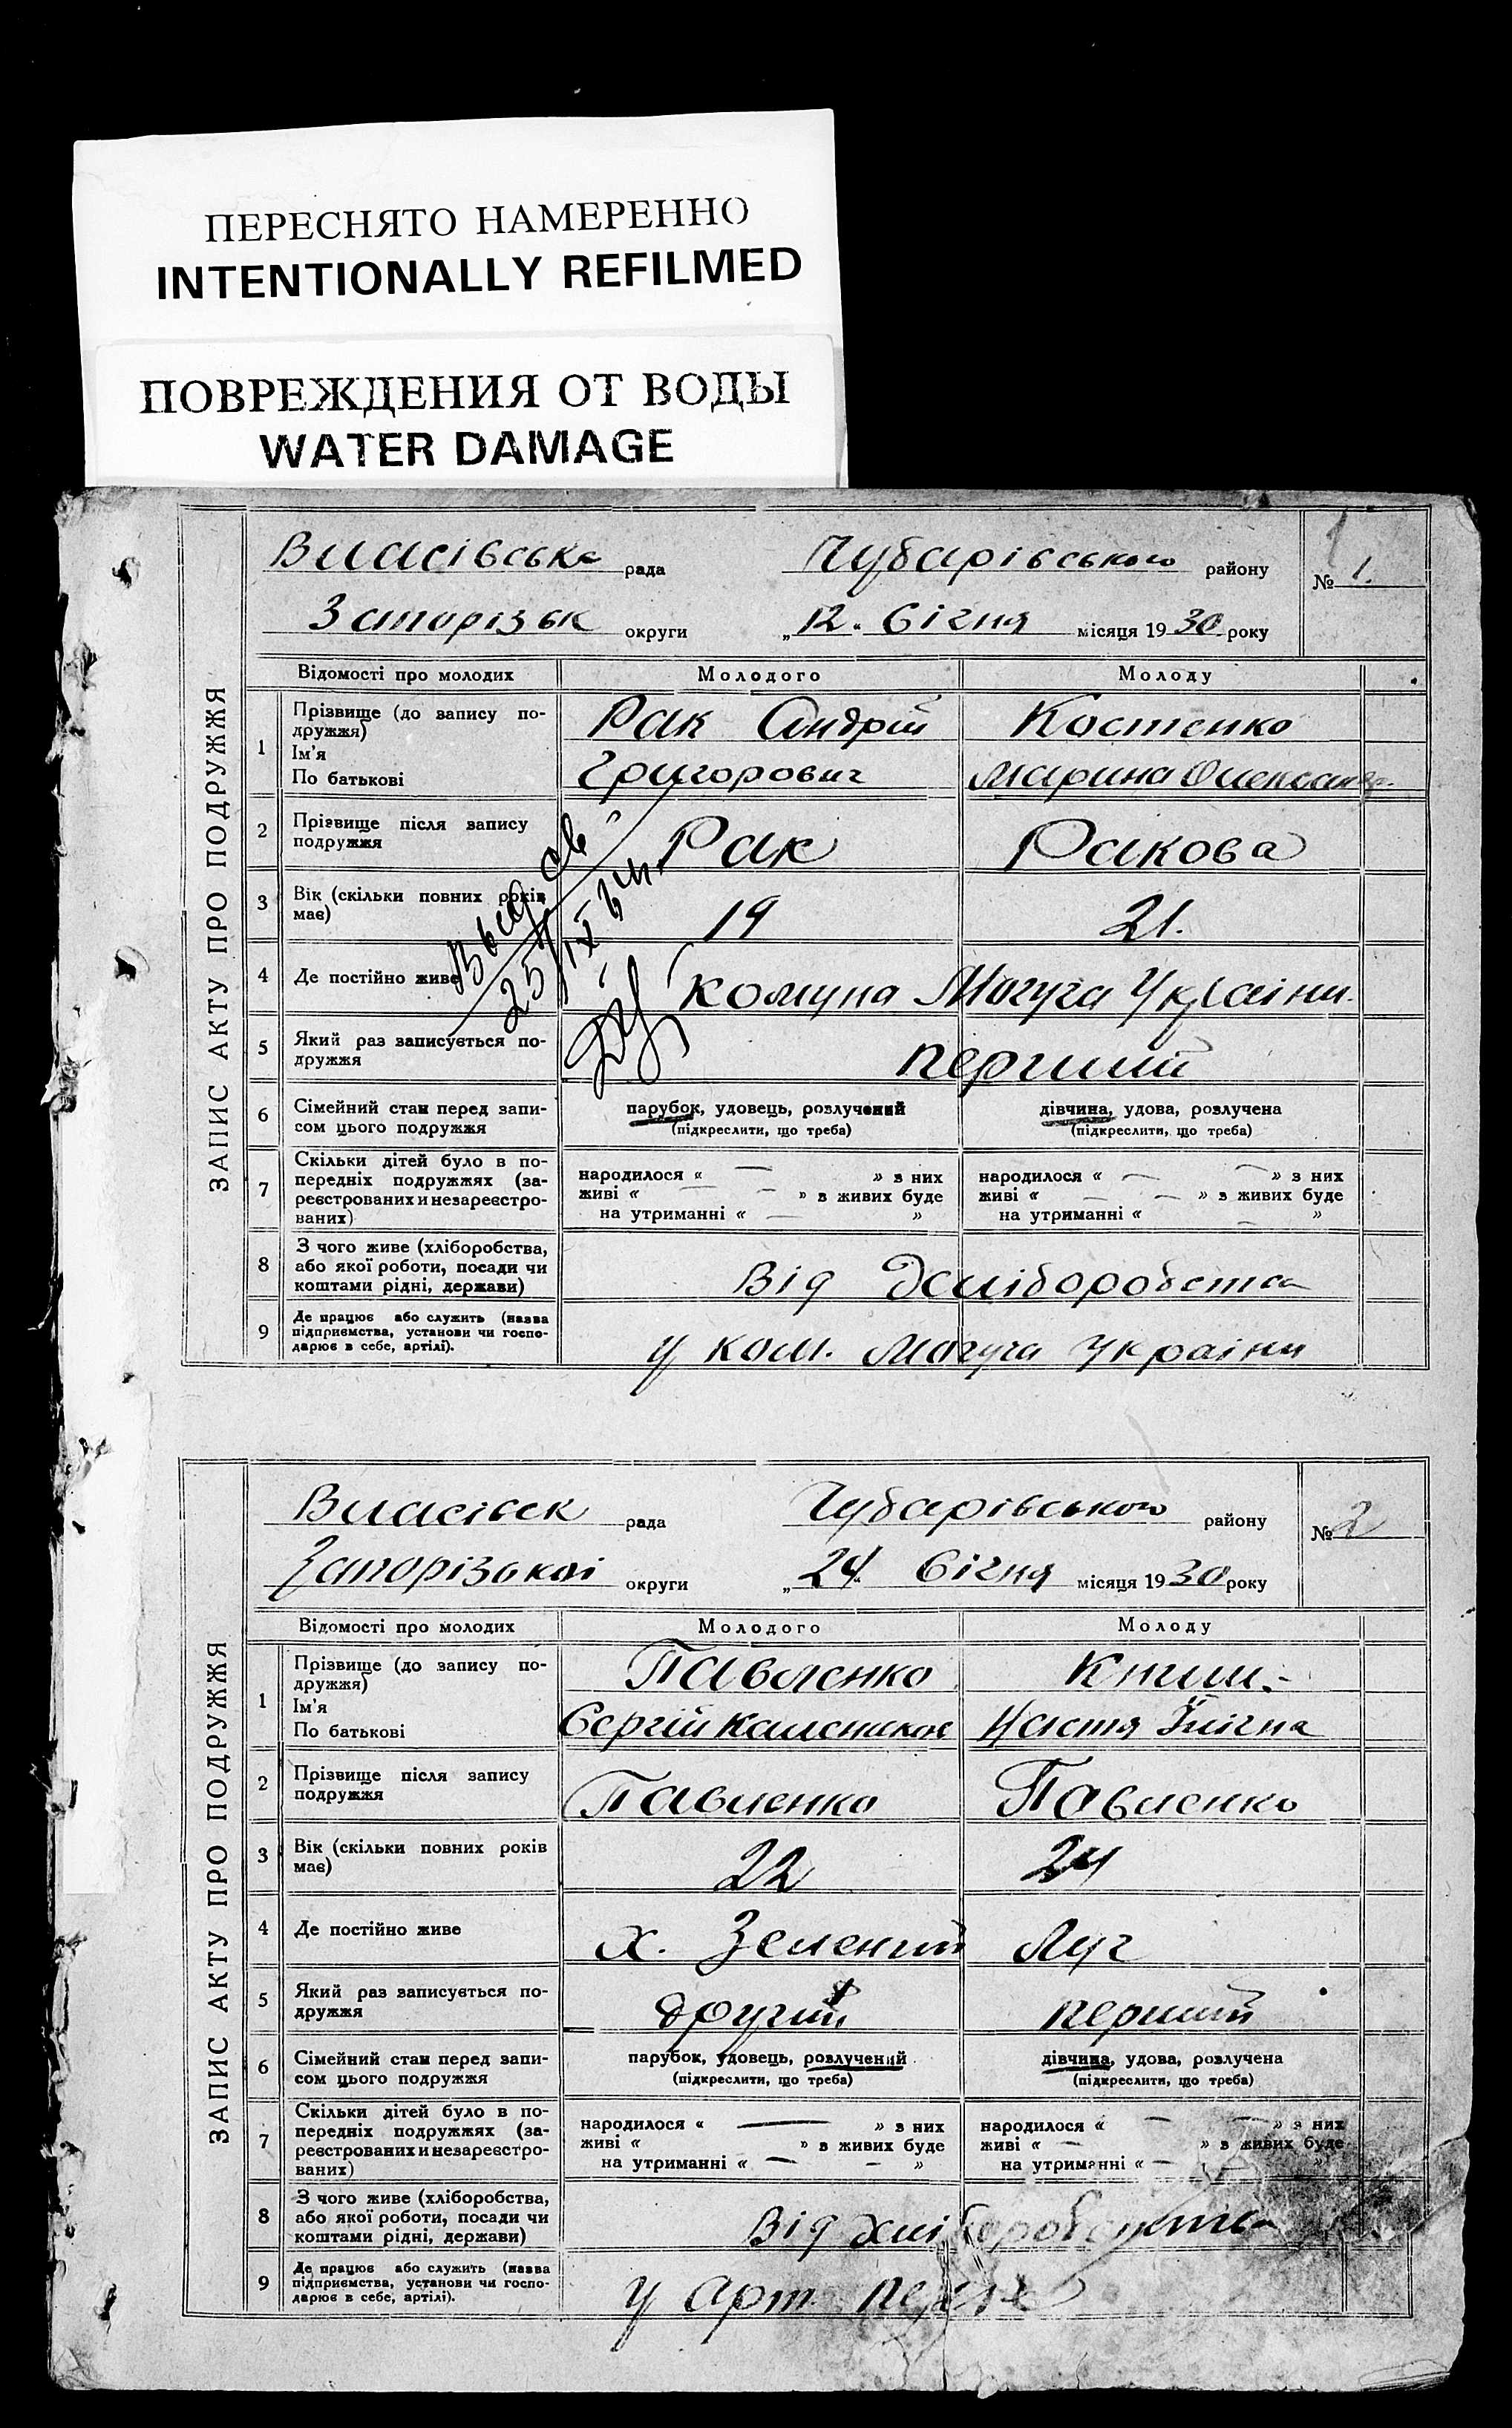 ПЕРЕСНЯТО НАМЕРЕННО
INTENTIONALLY REFILMED
ПОВРЕЖДЕНИЯ ОТ ВОДЫ
WATER DAMAGE
ЗАПИС АКТУ ПРО ПОДРУЖЖЯ
Власівська рада Чубарівського району № 1.
Запорізьк округи „12. Січня місяця 1930 року
Відомості про молодих Молодого Молоду
1 Прізвище (до запису по- Рак Андрій Костенко
дружжя)
Ім'я
По батькові Григорович Марина Олександр.
2 Прізвище після запису
подружжя Рак Ракова
3 Вік (скільки повних років
має) 19 21.
4 Де постійно живе комуна Могуча України.
5 Який раз записується по-
дружжя перший
6 Сімейний стан перед запи- парубок, удовець, розлучений дівчина, удова, розлучена
сом цього подружжя (підкреслити, що треба) (підкреслити, що треба)
7 Скільки дітей було в по-
передніх подружжях (за- народилося « — » з них народилося « — — » з них
реєстрованих и незареєстро- живі « — — » з живих буде живі « — — » з живих буде
ваних) на утриманні « — » на утриманні « — »
8 З чого живе (хліборобства,
або якої роботи, посади чи
коштами рідні, держави) Від хліборобства
9 Де працює або служить (назва
підприємства, установи чи госпо-
дарює в себе, артілі). у ком. Могуча України
Выд св
25/IX
ЗАПИС АКТУ ПРО ПОДРУЖЖЯ
Власівськ рада Чубарівського району № 2
Запорізької округи „24. Січня місяця 1930 року
Відомості про молодих Молодого Молоду
1 Прізвище (до запису по- Павленко Книш.-
дружжя)
Ім'я
По батькові Сергій Настя Їлічна
2 Прізвище після запису
подружжя Павленко Павленко
3 Вік (скільки повних років
має) 22 24
4 Де постійно живе х. Зелений Луг
5 Який раз записується по-
дружжя другий перший
6 Сімейний стан перед запи- парубок, удовець, розлучений дівчина, удова, розлучена
сом цього подружжя (підкреслити, що треба) (підкреслити, що треба)
7 Скільки дітей було в по-
передніх подружжях (за- народилося « — » з них народилося « — — » з них
реєстрованих и незареєстро- живі « » з живих буде живі « — » з живих буде
ваних) на утриманні « — — » на утриманні « — — »
8 З чого живе (хліборобства,
або якої роботи, посади чи
коштами рідні, держави) Від хліборобства
9 Де працює або служить (назва
підприємства, установи чи госпо-
дарює в себе, артілі). у арт.